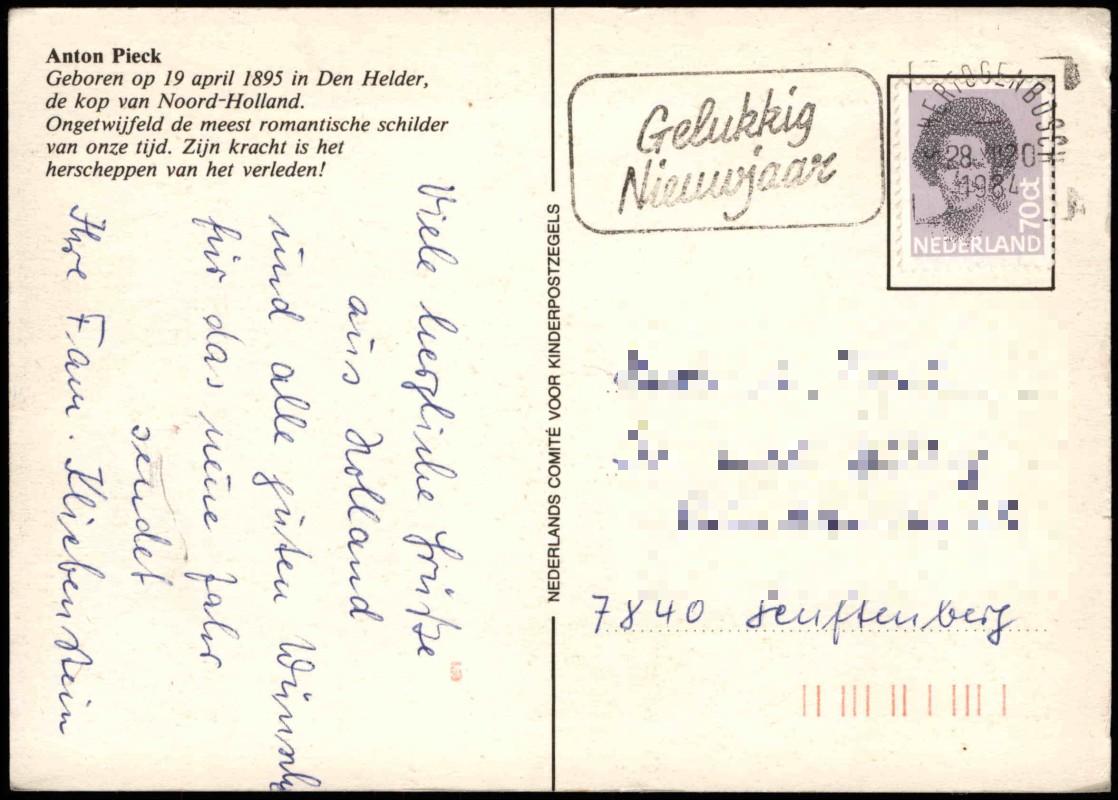 Anton Pieck
Geboren op 19 april 1895 in Den Helder,
de kop van Noord-Holland.
Ongetwijfeld de meest romantische schilder
van onze tijd. Zijn kracht is het
herscheppen van het verleden!
Viele herzliche Grüße
aus Holland
und alle guten Wünsche
für das neue Jahr
sendet
Ihre Fam. Kliebenstein
NEDERLANDS COMITÉ VOOR KINDERPOSTZEGELS
Gelukkig
Nieuwjaar
HERTOGENBOSCH
28
1984
70ct
NEDERLAND
7840 Senftenberg